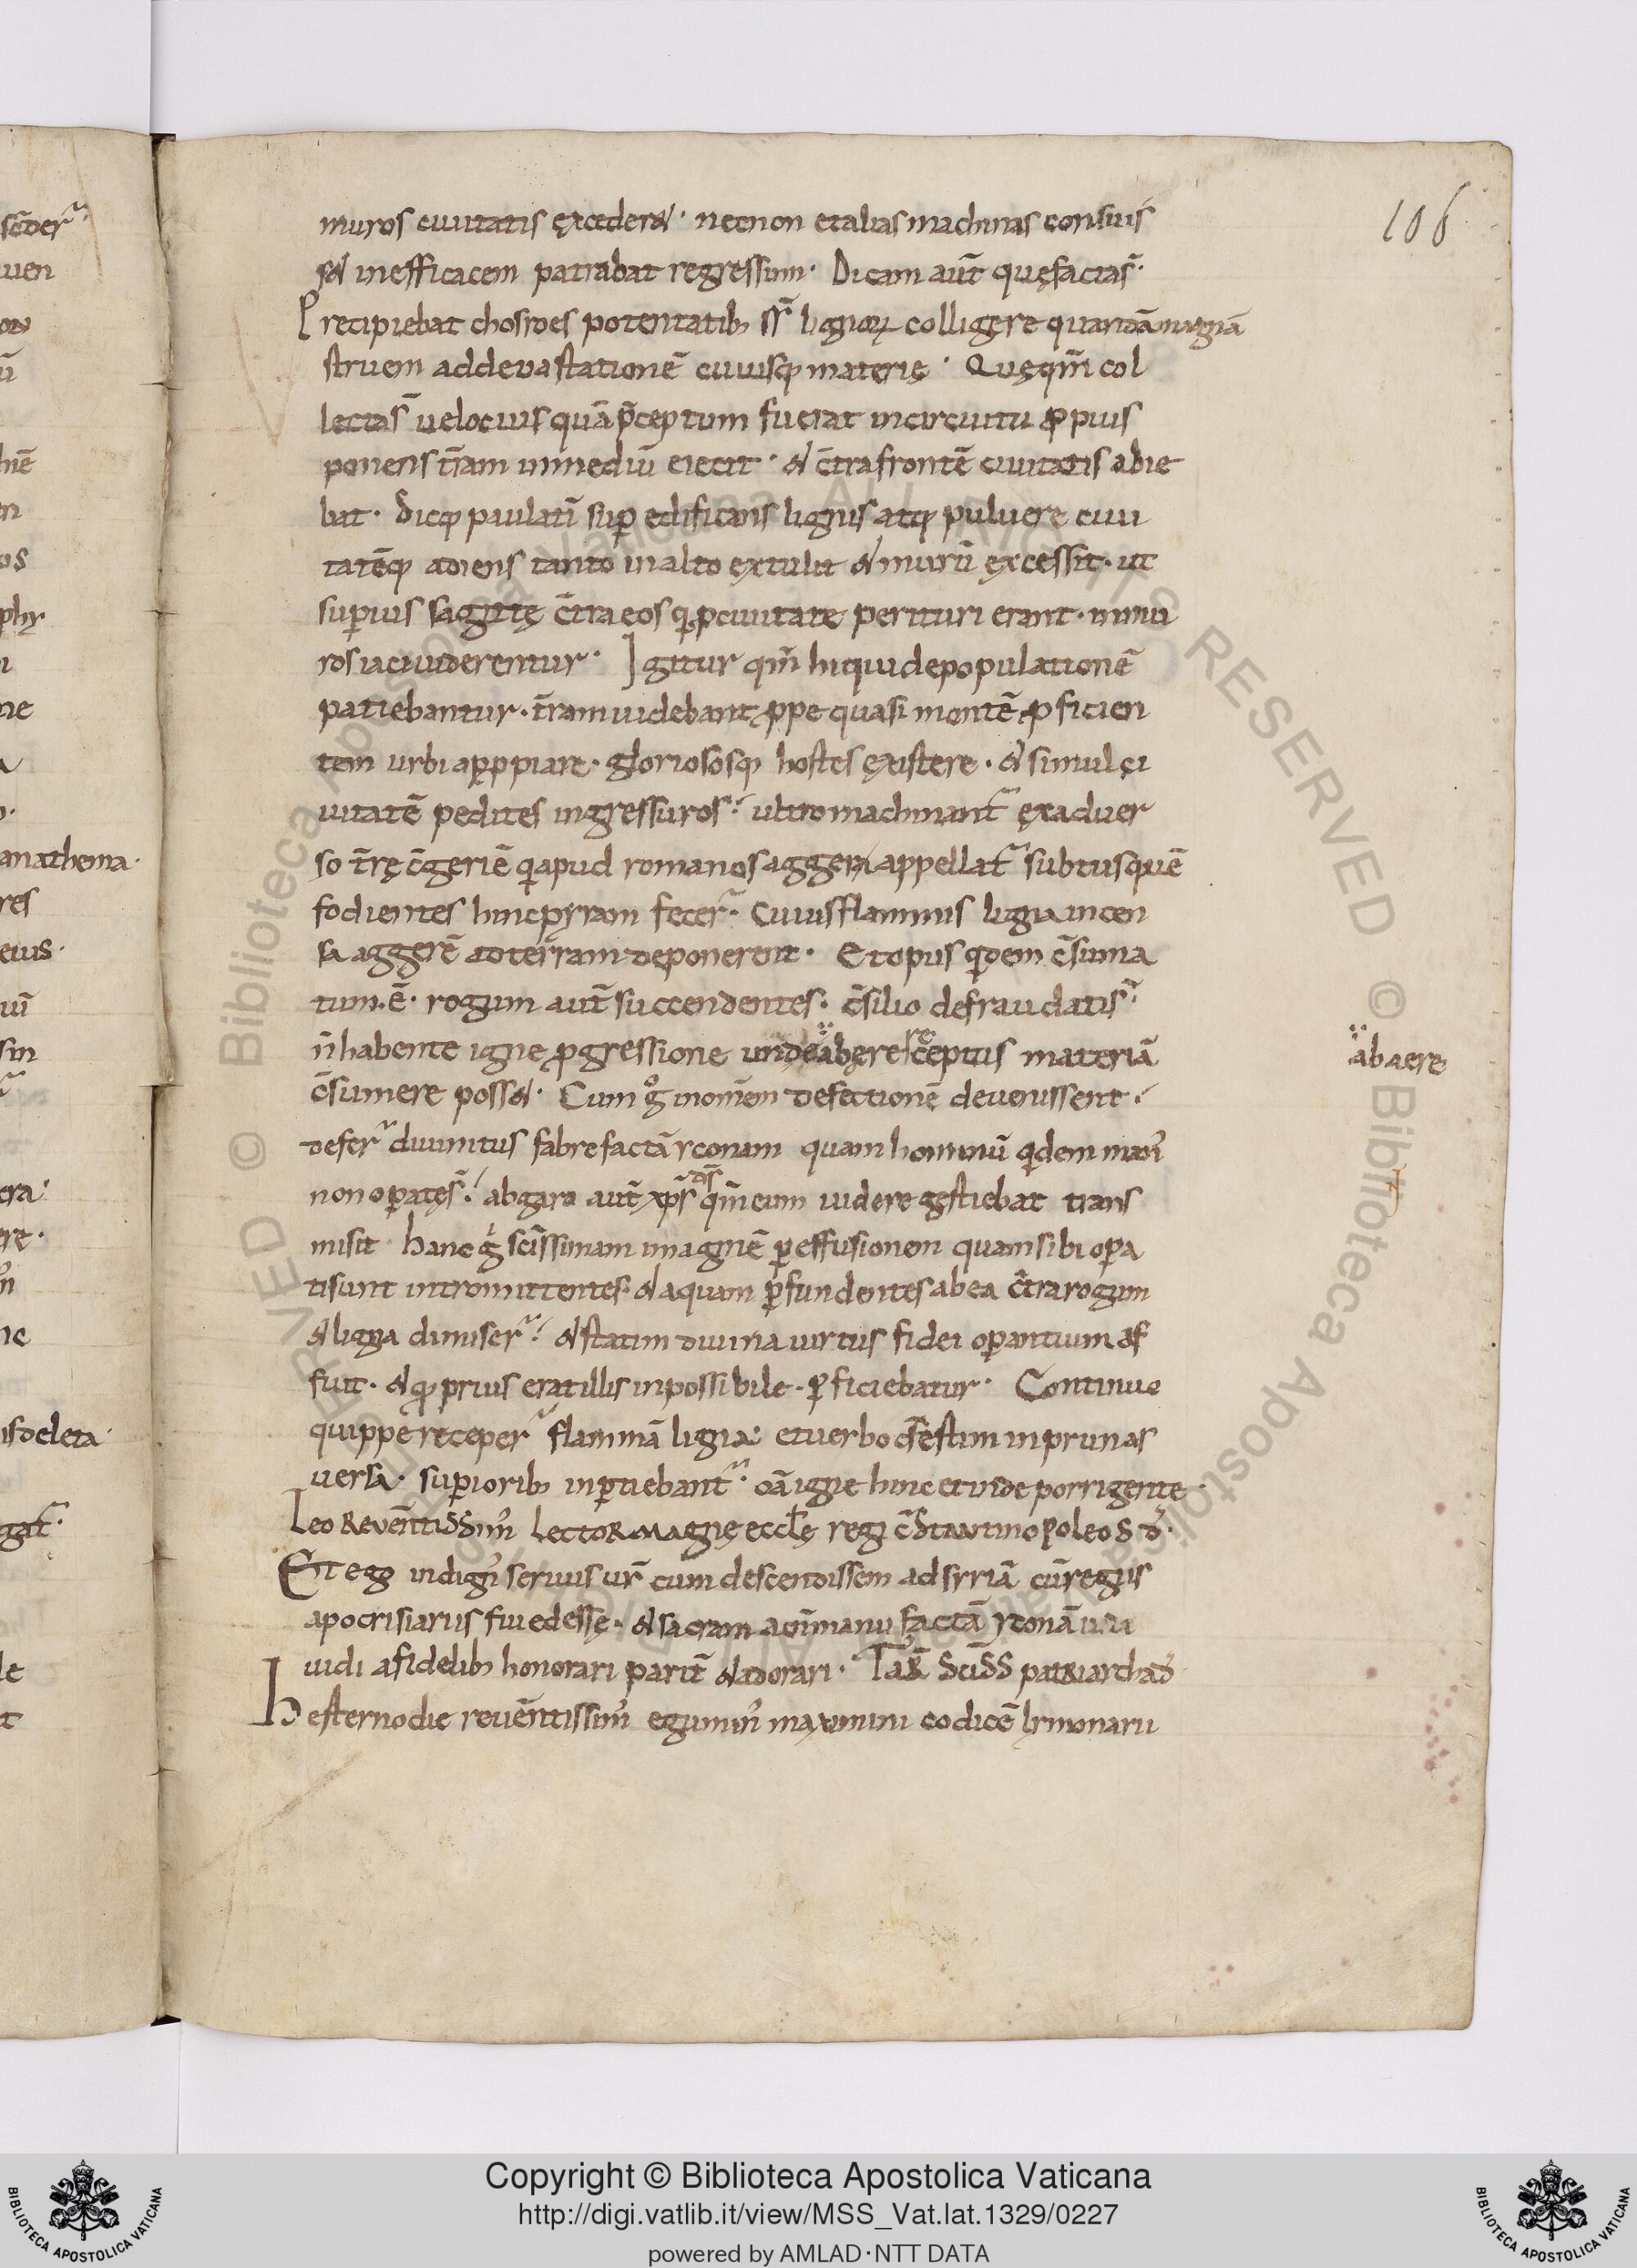 106
muros ciuitatis excederet · necnon et alias machinas consuis
set inefficacem patrabat regressum · Dicam aut̄ quę facta s̄ ·
Precipiebat chosroes potentatib; colligere quandā magnā
struem ad deuastationē cuiusq; materię · Quę qm̄ col
lecta s̄ uelocius quā p̄ceptum fuerat in circuitu ꝓpius
ponens t̄ram in mediū eiecit · et c̄tra frontē ciuitatis abie
bat · Sicq; paulatī sup̱ edificans lignis atq; puluere ciui
tatēq; adiens tanto in alto extulit et murū excessit · ut
sup̱ius sagittę c̄tra eos q̱ p̱ ciuitate perituri erant · in mu
ros iaci uiderentur · Igitur qm̄ hi qui depopulationē
patiebantur · t̄ram uidebant ꝓpe quasi montē ꝓficien
tem urbi apꝓpiare · gloriososq; hostes existere · et simul ci
uitatē pedites ingressuros · ultro machinant̄ ex aduer
so t̄rę c̄geriē q̱ apud romanos agger appellat̄ subtus quē
fodientes hinc pyram fecer̄ · Cuius flammis ligna incen
sa aggerē ad terram deponerent · Et opus q̱dem c̄suma
tum · ē · rogum aut̄ succendentes · c̄silio defraudati s̄ ·
n̄ habente igne ꝓgressione unde ab ere receptus materiā
ab aere
c̄sumere posset · Cum g̊ in om̄em defectionē deuenissent ·
defer̄ diuinitus fabrefactā yconam quam hominū q̱dem man'
non op̱atę s̄ · abgaro aut̄ xp̄s ds̄ qm̄ eum uidere gestiebat trans
misit · hanc g̊ sc̄issimam imaginē p̱ effusionem quam sibi op̱a
ti sunt intromittentes · et aquam p̱fundentes ab ea c̄tra rogum
et ligna dimiser̄ · et statim diuina uirtus fidei op̱antium af
fuit · et q; prius erat illis inpossibile · p̱ficiebatur · Continue
quippe receper̄ flammā ligna · et uerbo c̄festim in prunas
uersa · sup̱iorib; inp̱tiebant̄ · oā igne hinc et inde porrigente ·
Leo reuēntissim' lector magnę eccl̄ę regię c̄stantinopoleos d̄ ·
Et ego indign' seruus ur̄ cum descendissem ad syriā cū regiis
apocrisiariis fui edessę · et sacram a n̄ manu factā yconā
uidi a fidelib; honorari parit̄ et adorari · Tar̄ sciss patriarcha d̄
Hesterno die reuēntissim' egumin' maximini codicē lymonarii